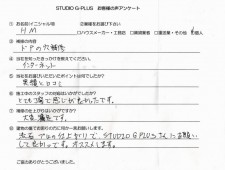 STUDIO G-PLUS お客様の声アンケート
① お名前(イニシャル可)
H M
② 職種をお選び下さい
□ハウスメーカー・工務店 □建築業者 □運送業・その他
個人
③ 補修の内容
ドアの穴補修
④ 当社を知ったきっかけを教えて下さい。
インターネット
⑤ 当社をお選びいただいたポイントは何でしたか?
実績と口コミ
⑥ 施工中のスタッフの対応はいかがでしたか?
とても丁寧で感じが良かったです。
⑦ 補修の仕上がりはいかがですか?
大変満足です。
流石プロの仕上がりで、STUDIO G PLUSさんにお願い
して良かったです。オススメします。
ご協力ありがとうございました。